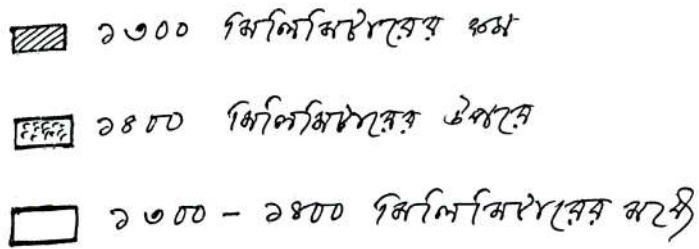 ১৩০০ মিলিমিটারের কম
১৪০০ মিলিমিটারের উপরে
১৩০০ - ১৪০০ মিলিমিটারের মধ্যে